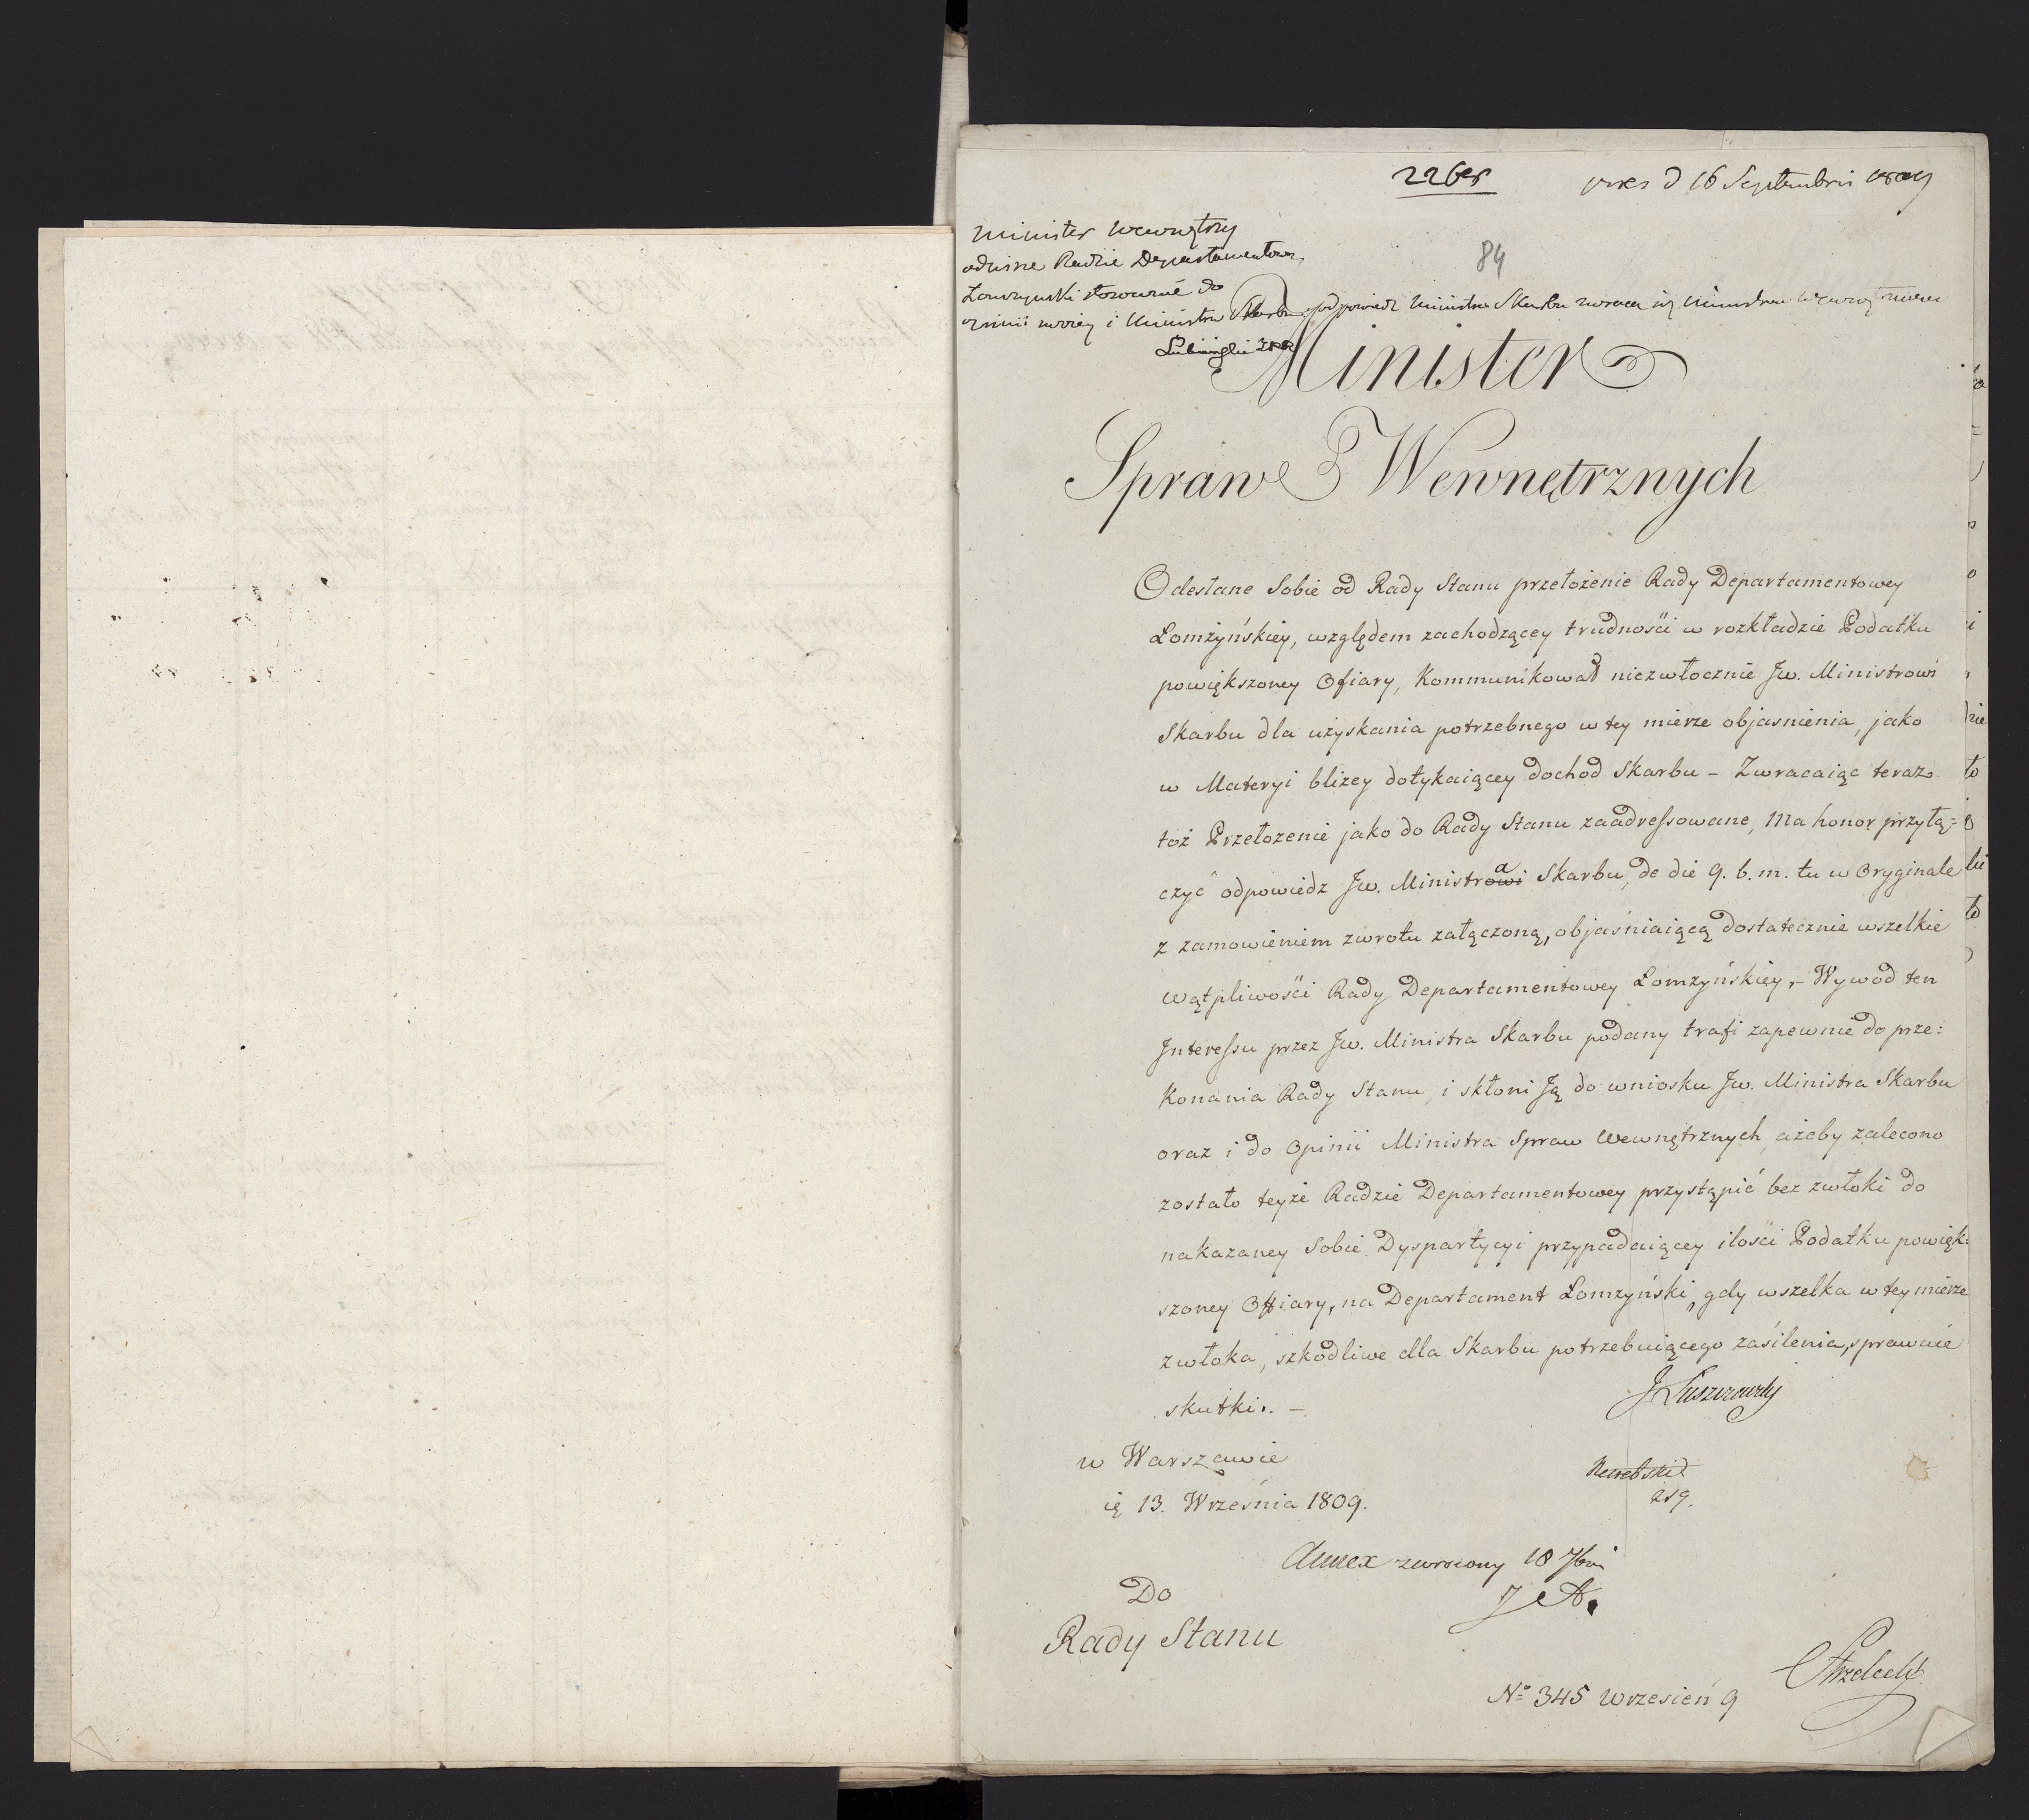 2268
pres d 16 Septembris 1809
84
Minister Wewnętrzny
odpisze Radzie Departamentowey
Łomżyński stosownie do
opinii swoiey i Ministra Skarbu
odpowiedz Ministra Skarbu zwraca się Ministrowi Wewnętrznemu
Minister
Spraw Wewnętrznych
Odesłane Sobie od Rady Stanu przełożenie Rady Departamentowey
Łomżyńskiey, względem zachodzącey trudności w rozkładzie Podatku
powiększoney Ofiary, Kommunikował niezwłocznie Jw. Ministrowi
Skarbu dla użyskania potrzebnego w tey mierze objasnienia, jako
w Materyi bliżey dotykaiącey dochod Skarbu – Zwracaiąc teraz
toż Przełożenie jako do Rady Stanu zaadressowane, Ma honor przyłą=
czyć odpowiedz Jw. Ministra Skarbu, de die 9. b. m. tu w Oryginale
z zamowieniem zwrotu załączoną, objaśniaiącą dostatecznie wszelkie
wątpliwości Rady Departamentowey Łomżyńskiey, – Wywod ten
Interessu przez Jw. Ministra Skarbu podany trafi zapewnie do prze:
konania Rady Stanu, i skłoni Ją do wniosku Jw. Ministra Skarbu
oraz i do Opinii Ministra Spraw Wewnętrznych, ażeby zalecono
zostało teyże Radzie Departamentowey przystąpić bez zwłoki do
nakazaney Sobie Dyspartycyi przypadaiącey ilości Podatku powięk:
szoney Offiary, na Departament Łomżyński, gdy wszelka w tey mierze
zwłoka, szkodliwe dla Skarbu potrzebuiącego zasilenia, sprawuie
skutki. –
J Łuszczewsky
w Warszawie
13. Września 1809.
Annex zwrocony 18 7bris
Do
Rady Stanu
Strzelecki
No 345 Wrzesień 9